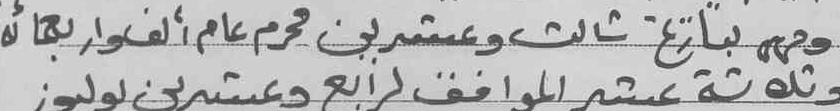 وجهه بتاريخ ثالث وعشرين محرم عام ألف وأربعمائة
وثلاثة عشر الموافق لرابع وعشرين يوليوز